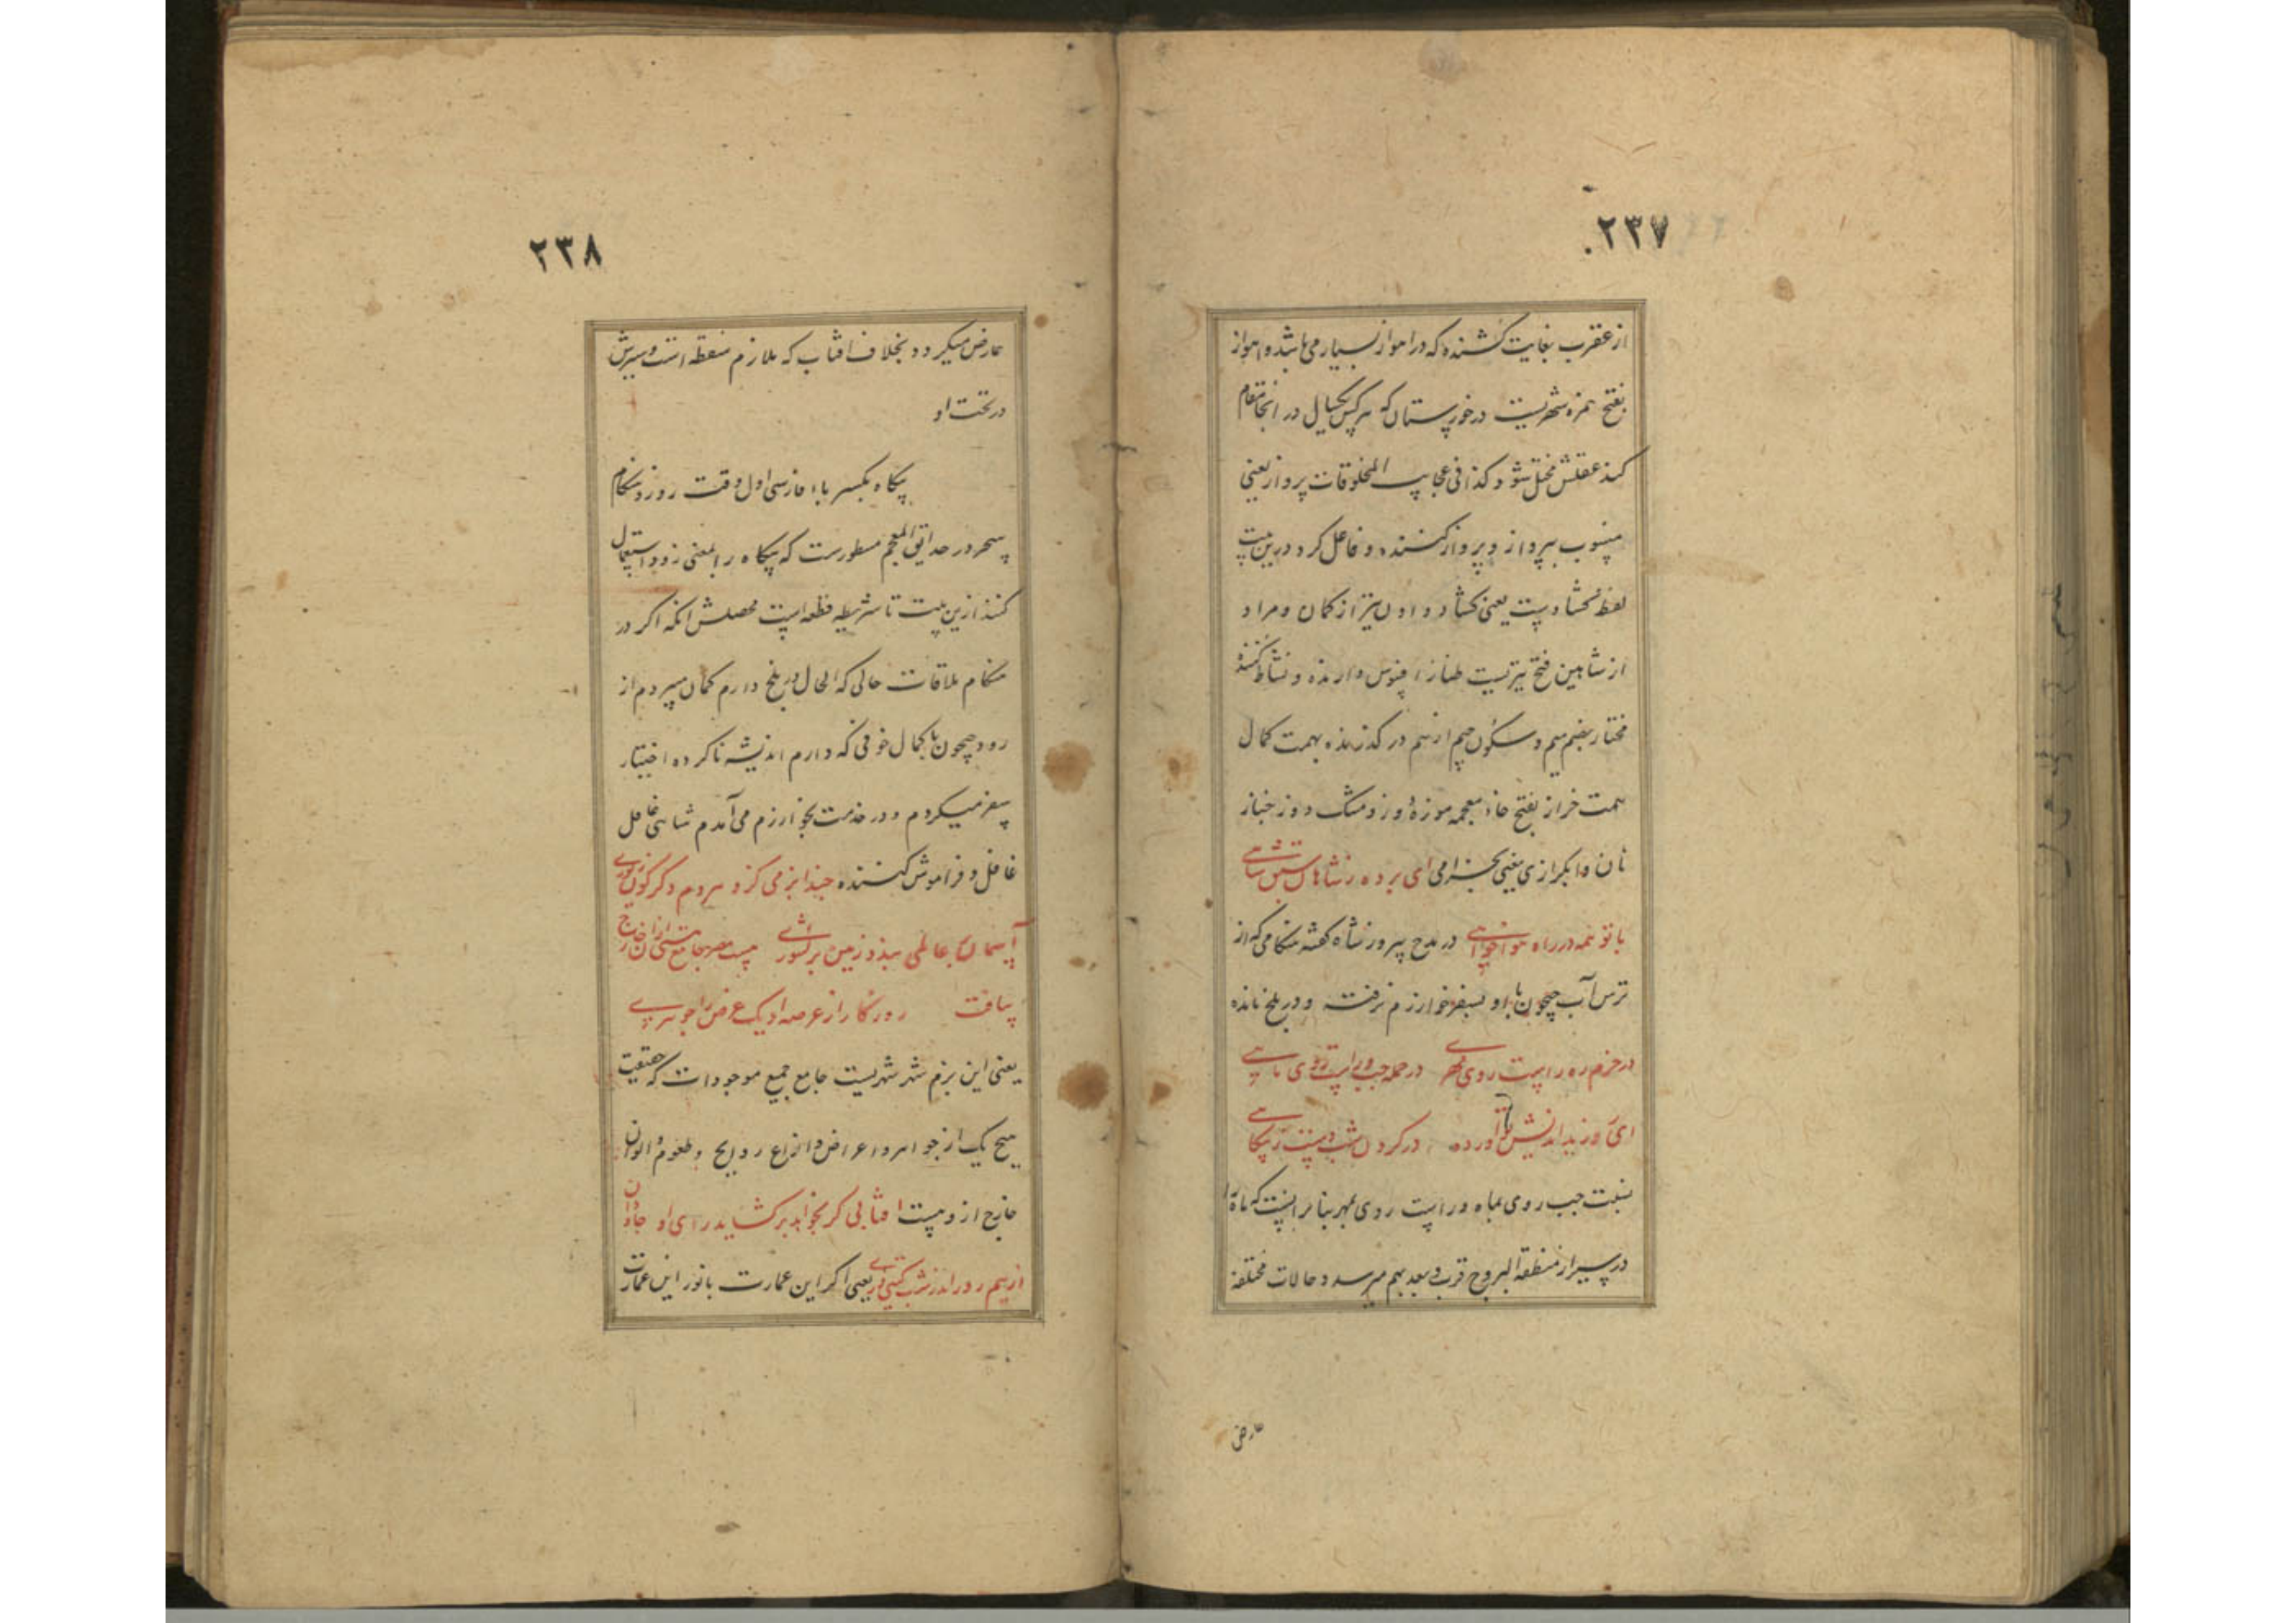 ۲۳۷
از عقرب بغایت کشنده که در اهواز بسیار می باشد و اهواز
بفتح همزه شهریست در خوزستان که هر کس یکسال در انجا مقام
کند عقلش مختل شود کذا فی عجایب المخلوقات پرواز یعنی
منسوب بپرواز و پرواز کننده و فاعل کرد درین بیت
لفظ کشادیست یعنی کشاد داد اول تیر از کمان و مراد
از شاهین فتح تیریست طناز افسوس دارنده و نشاط کننده
مختار بضم میم و سکون جیم از هم در گذرنده بهمت کمال
همت خراز بفتح خاء معجمه موزه دوز و مشک دوز خباز
نان وا بکرازی یعنی بخرامی ای برده ز شاهان سبق شاهی
با تو همه در راه هواخواهی در مدح پیروز شاه گفته هنگامی که از
ترس آب جیحون با او بسفر خوارزم نرفته و در بلخ مانده
در حزم ره راست روی مهری در حمله چپ و راست روی ماهی
ای روز بداندیش تو آورده در کردن شب دست ز پیکاهی
نسبت چپ روی بماه و راست روی بمهر بنا بر انست که ماه را
در سیر از منطقه البروج قرب و بعد بهم میرسد و حالات مختلفه
عارض
۲۳۸
عارض میکردد بخلاف افتاب که ملازم منطقه است و سیرش
در تحت او
پیکاه بکسر باء فارسی اول وقت روز و هنکام
سحر در حدایق المعجم مسطورست که پیکاه را بمعنی زود استعمال
کنند ازین بیت تا شریطه قطعه ایست محصلش انکه اکر در
هنکام ملاقات حالی که الحال در بلخ دارم کمان میبردم از
رود جیحون با کمال خوفی که دارم اندیشه ناکرده اختیار
سفر میکردم و در خدمت بخوارزم می آمدم شاهی غافل
غافل و فراموش کننده حبذا بزمی کزو هردم دکرکون زیوری
آسمان بر عالمی بندد زمین بر کشوری مصر جامع خارج
نیافت روزکار از عرصه او یک عرض را جوهری
یعنی این بزم شهر شهریست جامع جمیع موجودات که حقیقت
هیچ یک از جواهر و اعراض و انواع روایح و طعوم و الوان
خارج ازو نیست افتابی کر بخواهد برکشاید رای او جاودان
از نیم روز اندر شب کیتی دری یعنی اکر این عمارت با نور این عمارت